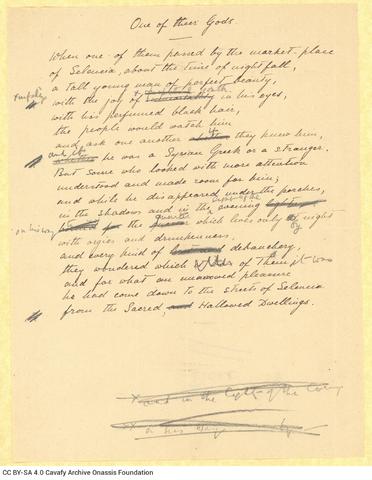 One of their Gods.
When one of them passed by the market-place
of Seleucia, about the time of nightfall,
a tall young man of perfect beauty,
with the joy of in his eyes,
with his perfumed black hair,
the people would watch him
and ask one another if they knew him,
and if he was a Syrian Greek or a stranger.
But some who looked with more attention
understood and made room for him;
and while he disappeared under the porches,
in the shadows and in the evening
on his way the quarter which lives only by night
with orgies and drunkenness,
and every kind of debauchery,
they wondered which of Them it was
and for what unavowed pleasure
he had come down to the streets of Seleucia
from the Sacred, Hallowed Dwellings.
and in the light of the
on his way
CC BY-SA 4.0 Cavafy Archive Onassis Foundation